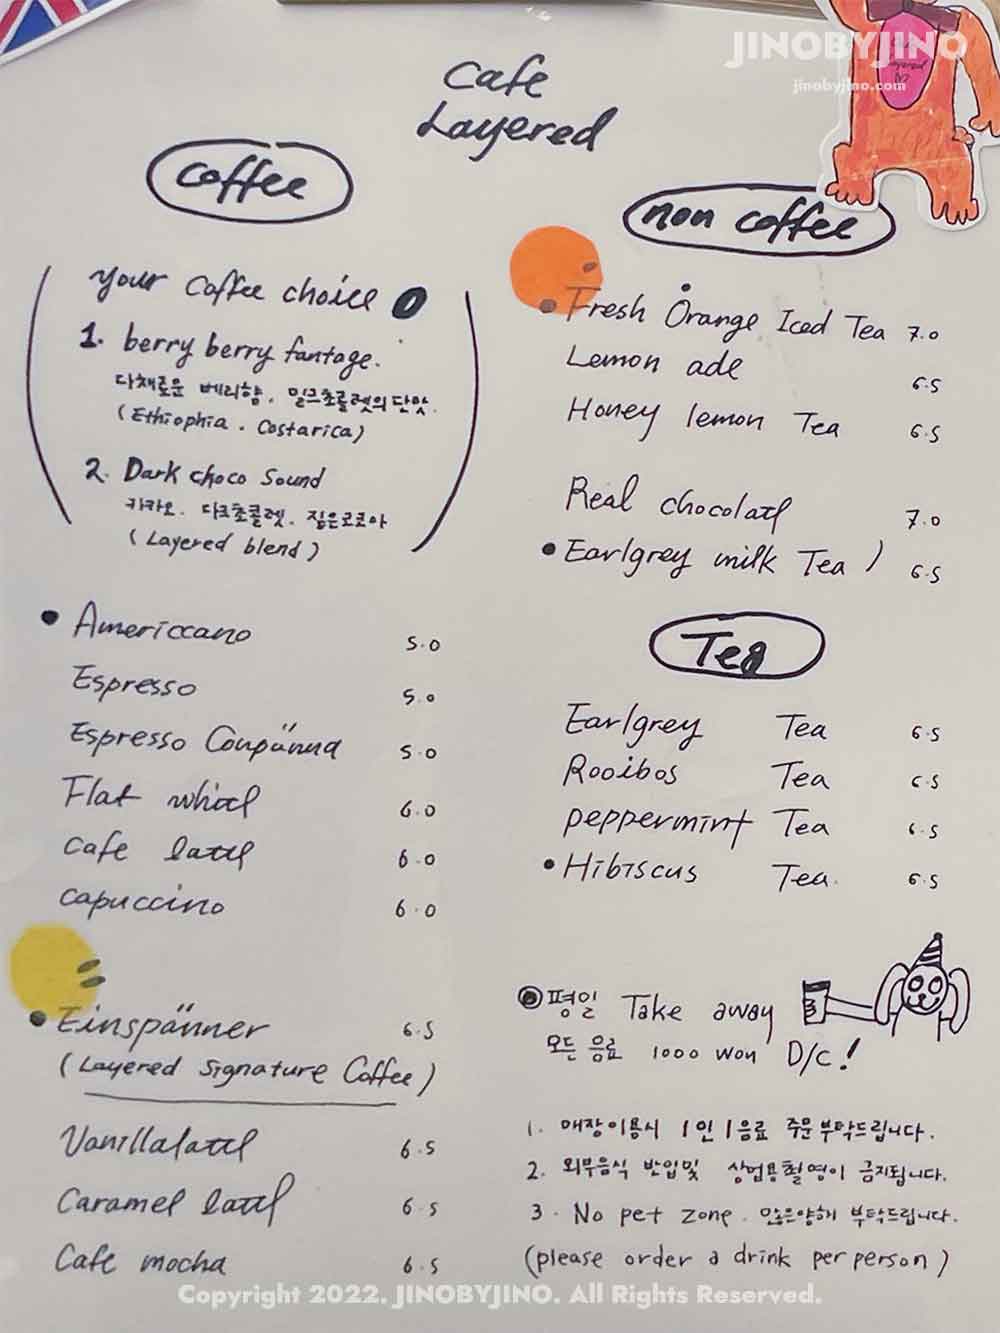 JINOBYJINO
jinobyjino.com
Cafe
Layered
Coffee
your coffee choice
1. berry berry fantage.
다채로운 베리향. 밀크초콜렛의 단맛.
(Ethiophia . Costarica)
2. Dark choco Sound
카카오. 다크초콜렛. 짙은코코아
(Layered blend)
• Americcano 5.0
Espresso 5.0
Espresso Conpänna 5.0
Flat white 6.0
cafe latte 6.0
capuccino 6.0
• Einspänner 6.5
(Layered Signature Coffee)
Vanillalatte 6.5
Caramel latte 6.5
Cafe mocha 6.5
non coffee
• Fresh Orange Iced Tea 7.0
Lemon ade 6.5
Honey lemon Tea 6.5
Real chocolate 7.0
• Earlgrey milk Tea ) 6.5
Tea
Earlgrey Tea 6.5
Rooibos Tea 6.5
peppermint Tea 6.5
• Hibiscus Tea. 6.5
평일 Take away
모든 음료 1000 won D/C!
1. 매장이용시 1인 1음료 주문 부탁드립니다.
2. 외부음식 반입및 상업용촬영이 금지됩니다.
3. No pet zone. 많은양해 부탁드립니다.
(please order a drink per person)
Copyright 2022. JINOBYJINO. All Rights Reserved.